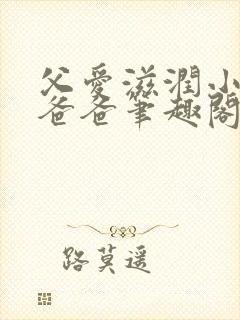 父爱滋润小
爸爸笔趣阁
路莫遥